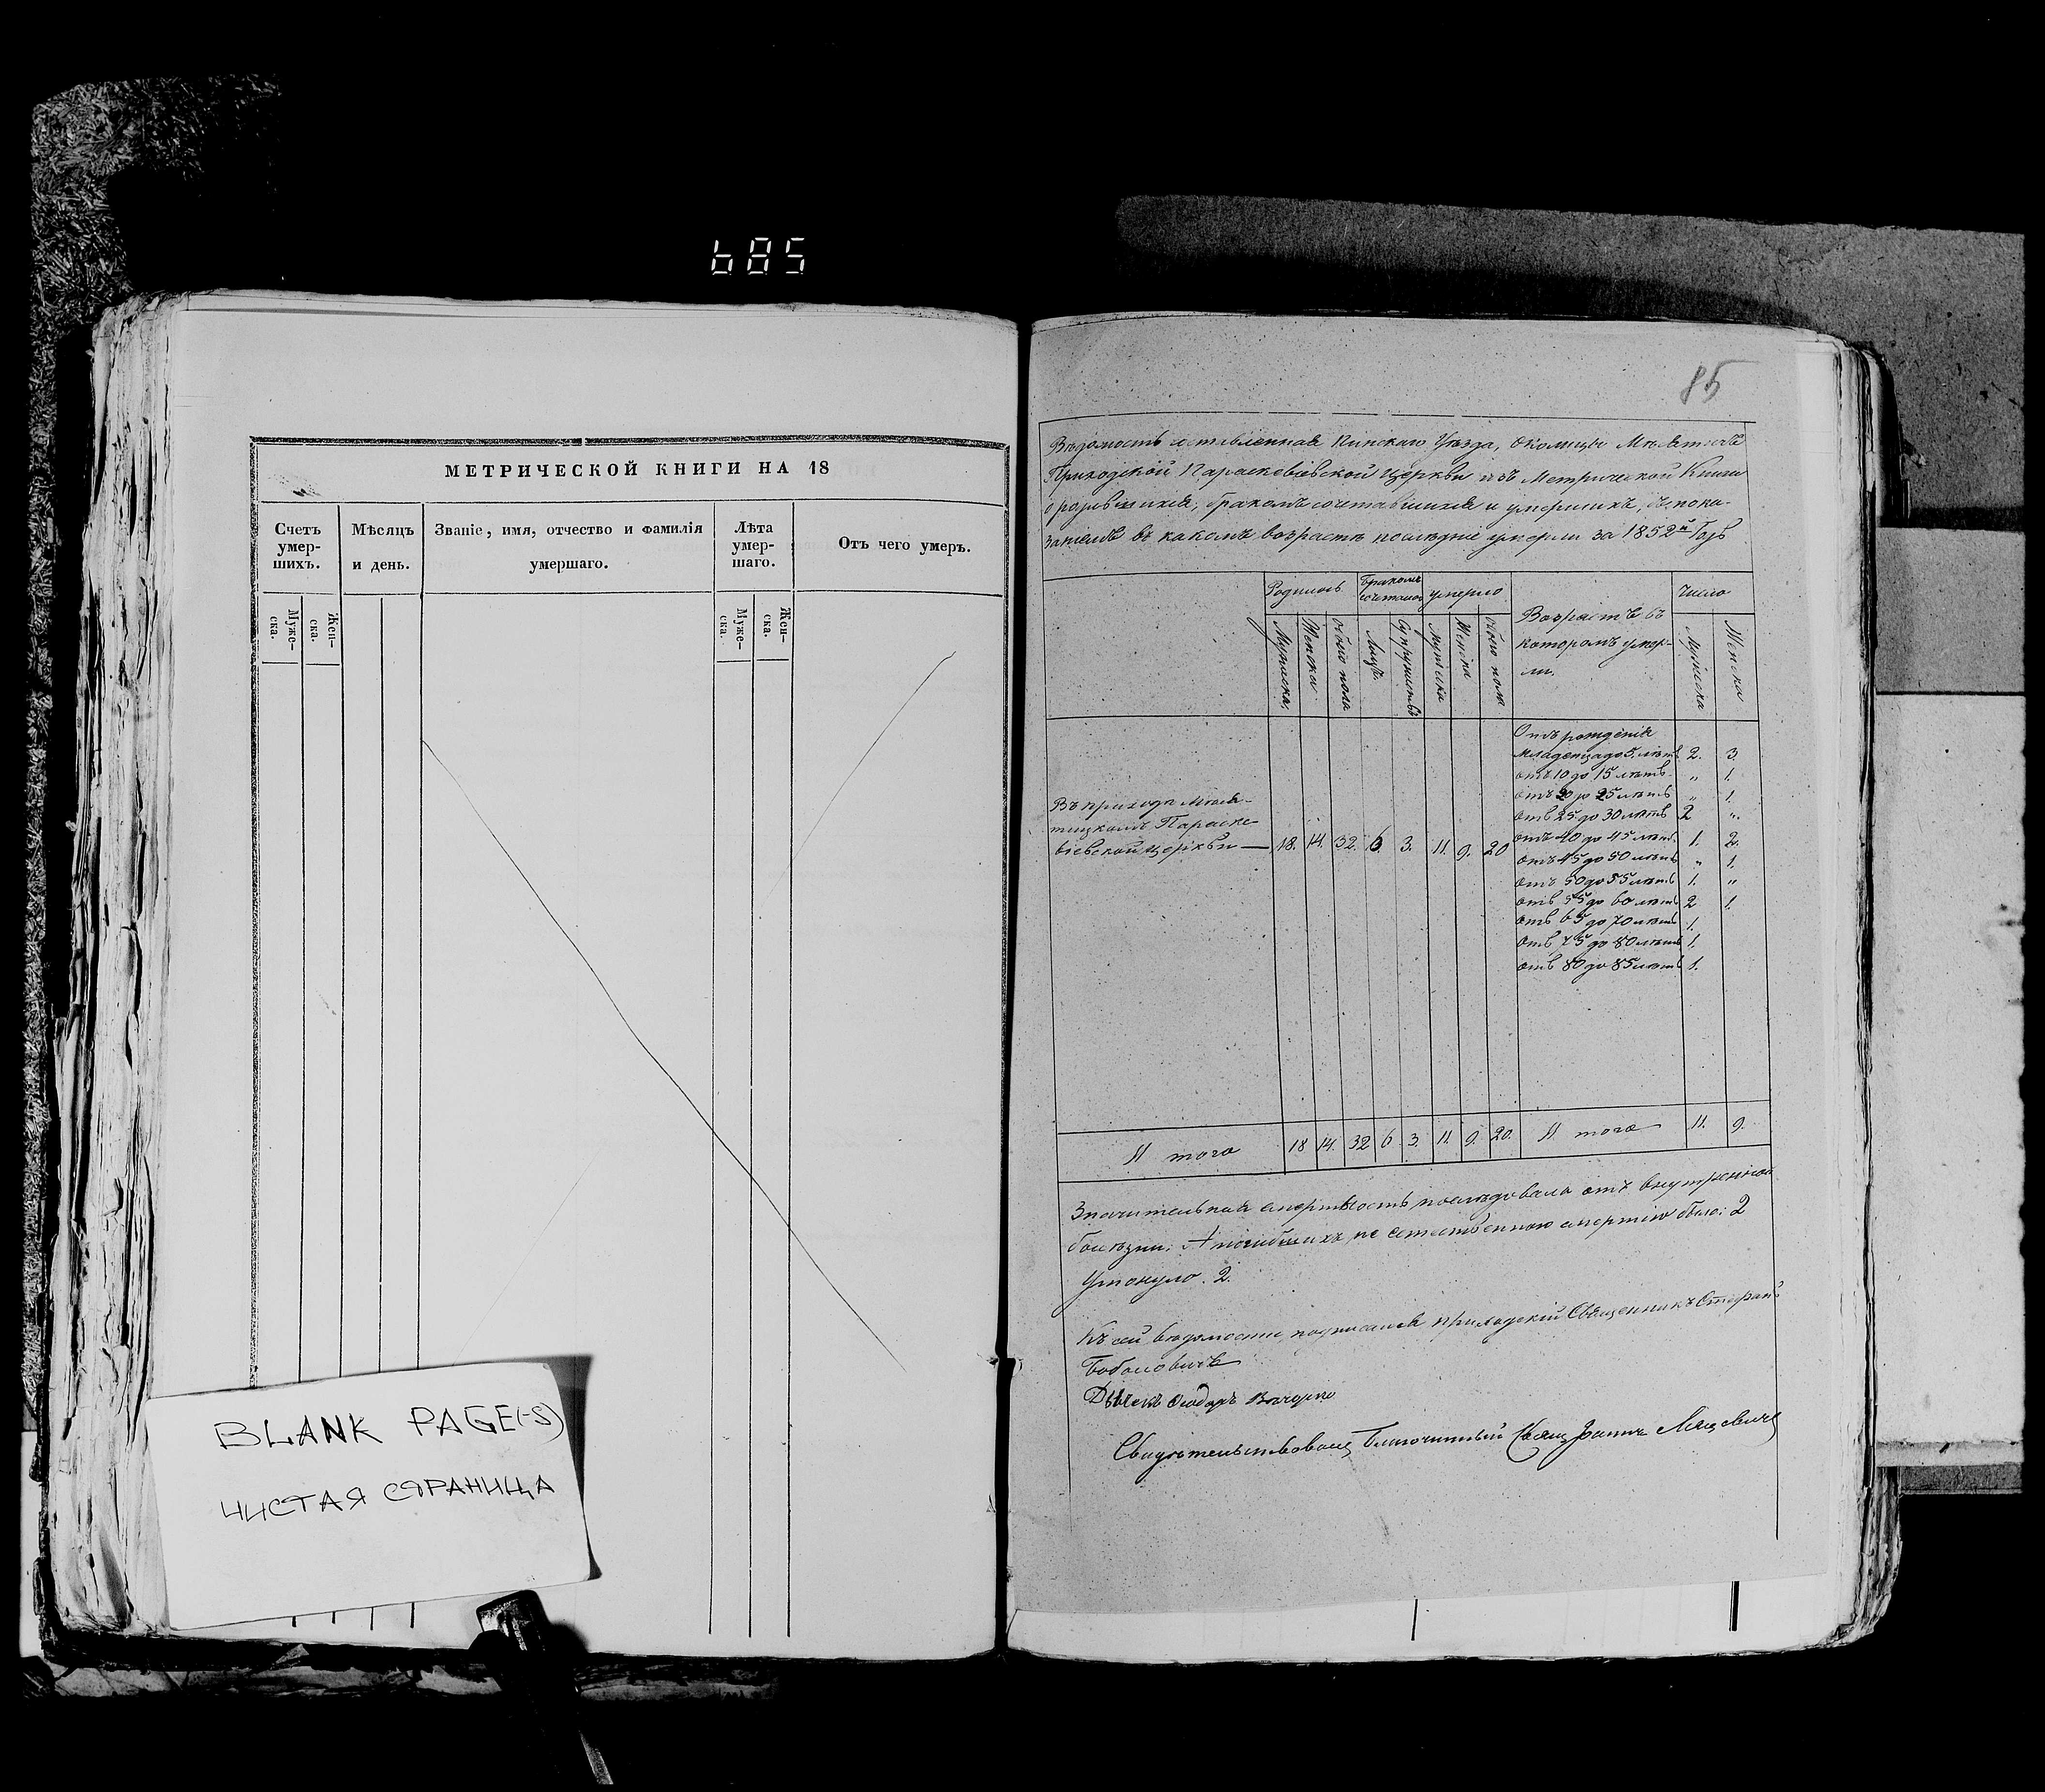 685
МЕТРИЧЕСКОЙ КНИГИ НА 18
Счетъ умер- шихъ.
Мѣсяцъ и день.
Званіе, имя, отчество и фамилія умершаго.
Лѣта умер- шаго.
Отъ чего умеръ.
Муже- ска.
Жен- ска.
Муже- ска.
Жен- ска.
BLANK PAGE(-S)
ЧИСТАЯ СТРАНИЦА
85
Вѣдомость составленная Пинскаго Уѣзда, Околицы
Приходской Параскевіевской Церкви изъ Метрической Книги
о родившихся, бракомъ сочетавшихся и умершихъ, съ пока-
заніемъ въ какомъ возрастѣ послѣдніе умерли за 1852й Годъ
Родилось
Бракомъ сочеталось
умерло
Возрастъ въ которомъ умер- ли.
Число
Мужеска
Женска
обоего пола
Лицъ
Супружествъ
мужеска
Женска
обоего пола
Мужеска
Женска
Отъ рожденія
младенца до 5. лѣтъ 2. 3.
отъ 10 до 15 лѣтъ „ 1.
отъ 20 до 25 лѣтъ „ 1.
отъ 25 до 30 лѣтъ 2 „
отъ 40 до 45 лѣтъ 1. 2.
отъ 45 до 50 лѣтъ „ 1.
отъ 50 до 55 лѣтъ 1. „
отъ 55 до 60 лѣтъ 2 1.
отъ 65 до 70 лѣтъ 1.
отъ 75 до 80 лѣтъ 1.
отъ 80 до 85 лѣтъ 1.
Въ приходѣ
Параске-
віевской церкви — 18. 14. 32. 6. 3. 11. 9. 20
И того 18 14. 32 6 3. 11. 9. 20. И того 11. 9.
Значительная смертность послѣдовала отъ внутренной
болѣзни. А погибшихъ не естественною смертію было: 2
Утонуло. 2.
Къ сей вѣдомости подписался приходскій Священникъ Стефанъ
Дьячекъ Ѳеодоръ
Свидѣтельствовалъ Благочинный Свящ